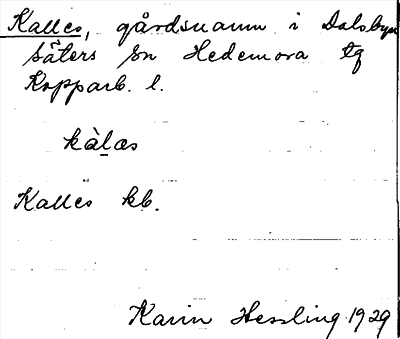 Kalles, gårdsnamn i Dalsbyn
Säters sn Hedemora tg
Kopparb. l.
kàlæs
Kalles kb.
Karin Hessling 1929